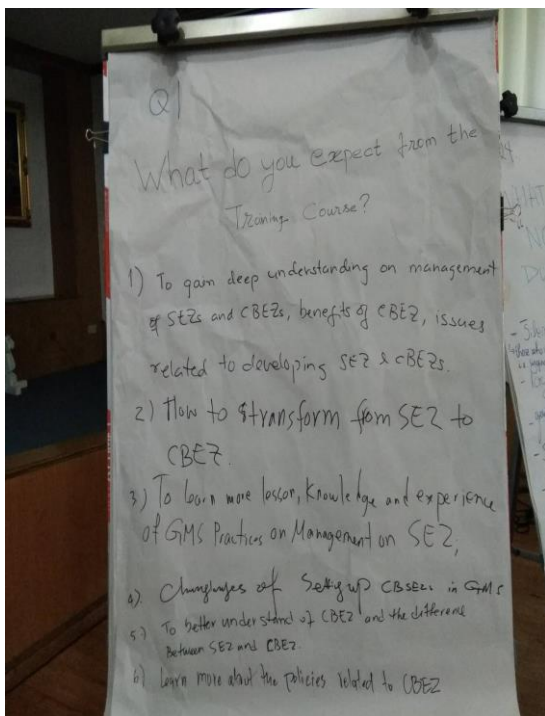 Q1
What do you expect from the
Traning Course?
1) To gain deep understanding on management
of SEZs and CBEZs, benefits of CBEZ, issues
related to developing SEZ & CBEZs.
2) How to transform from SEZ to
CBEZ.
3) To learn more lesson, knowledge and experience
of GMS Practices on Management on SEZ,
4). of Setting up in GMS
5.) To better understand of CBEZ and the difference
Between SEZ and CBEZ.
6) Learn more about the policies related to CBEZ
WHAT
NO
DU